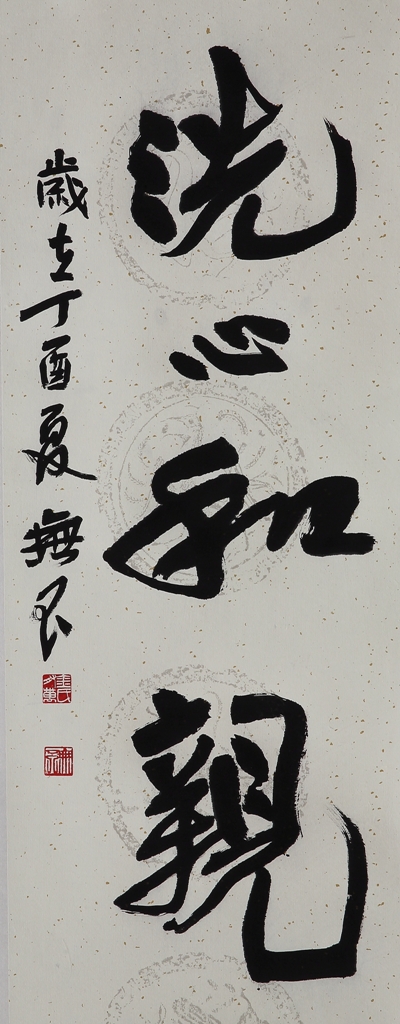 洗心和親
歲在丁酉夏撫民